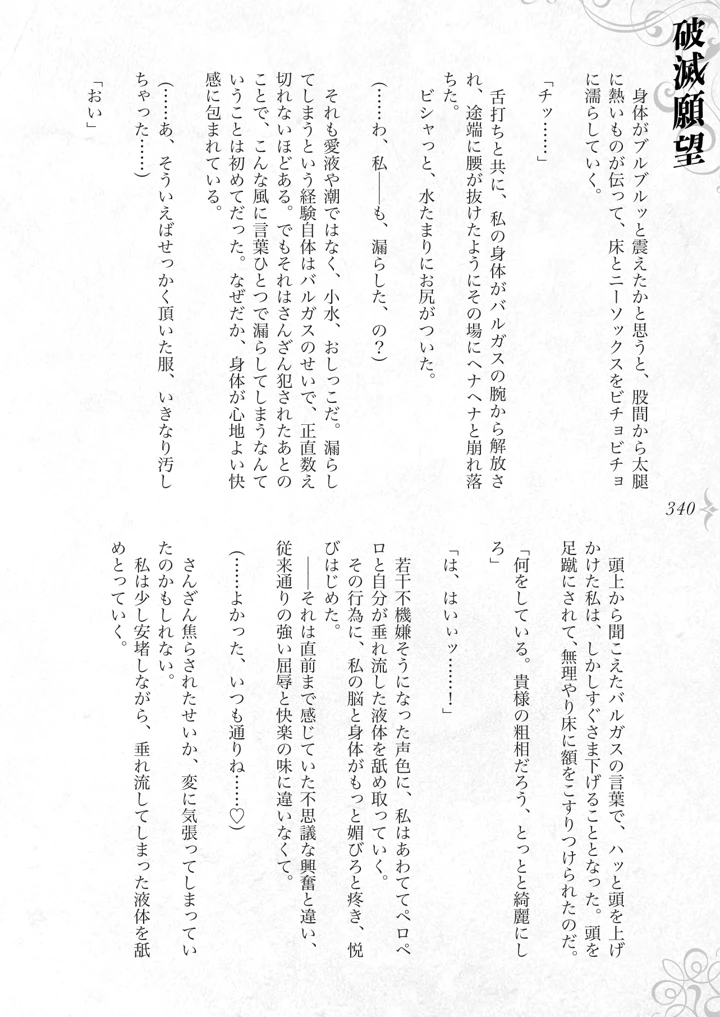 破滅願望
身体がブルブルッと震えたかと思うと、股間から太腿
に熱いものが伝って、床とニーソックスをビチョビチョ
に濡らしていく。
「チッ……」
舌打ちと共に、私の身体がバルガスの腕から解放さ
れ、途端に腰が抜けたようにその場にヘナヘナと崩れ落
ちた。
ビシャっと、水たまりにお尻がついた。
(……わ、私――も、漏らした、の?)
それも愛液や潮ではなく、小水、おしっこだ。漏らし
てしまうという経験自体はバルガスのせいで、正直数え
切れないほどある。でもそれはさんざん犯されたあとの
ことで、こんな風に言葉ひとつで漏らしてしまうなんて
いうことは初めてだった。なぜだか、身体が心地よい快
感に包まれている。
(……あ、そういえばせっかく頂いた服、いきなり汚し
ちゃった……)
「おい」
頭上から聞こえたバルガスの言葉で、ハッと頭を上げ
かけた私は、しかしすぐさま下げることとなった。頭を
足蹴にされて、無理やり床に額をこすりつけられたのだ。
「何をしている。貴様の粗相だろう、とっとと綺麗にし
ろ」
「は、はいぃッ……!」
若干不機嫌そうになった声色に、私はあわててペロペ
ロと自分が垂れ流した液体を舐め取っていく。
その行為に、私の脳と身体がもっと媚びろと疼き、悦
びはじめた。
――それは直前まで感じていた不思議な興奮と違い、
従来通りの強い屈辱と快楽の味に違いなくて。
(……よかった、いつも通りね……♡)
さんざん焦らされたせいか、変に気張ってしまってい
たのかもしれない。
私は少し安堵しながら、垂れ流してしまった液体を舐
めとっていく。
340